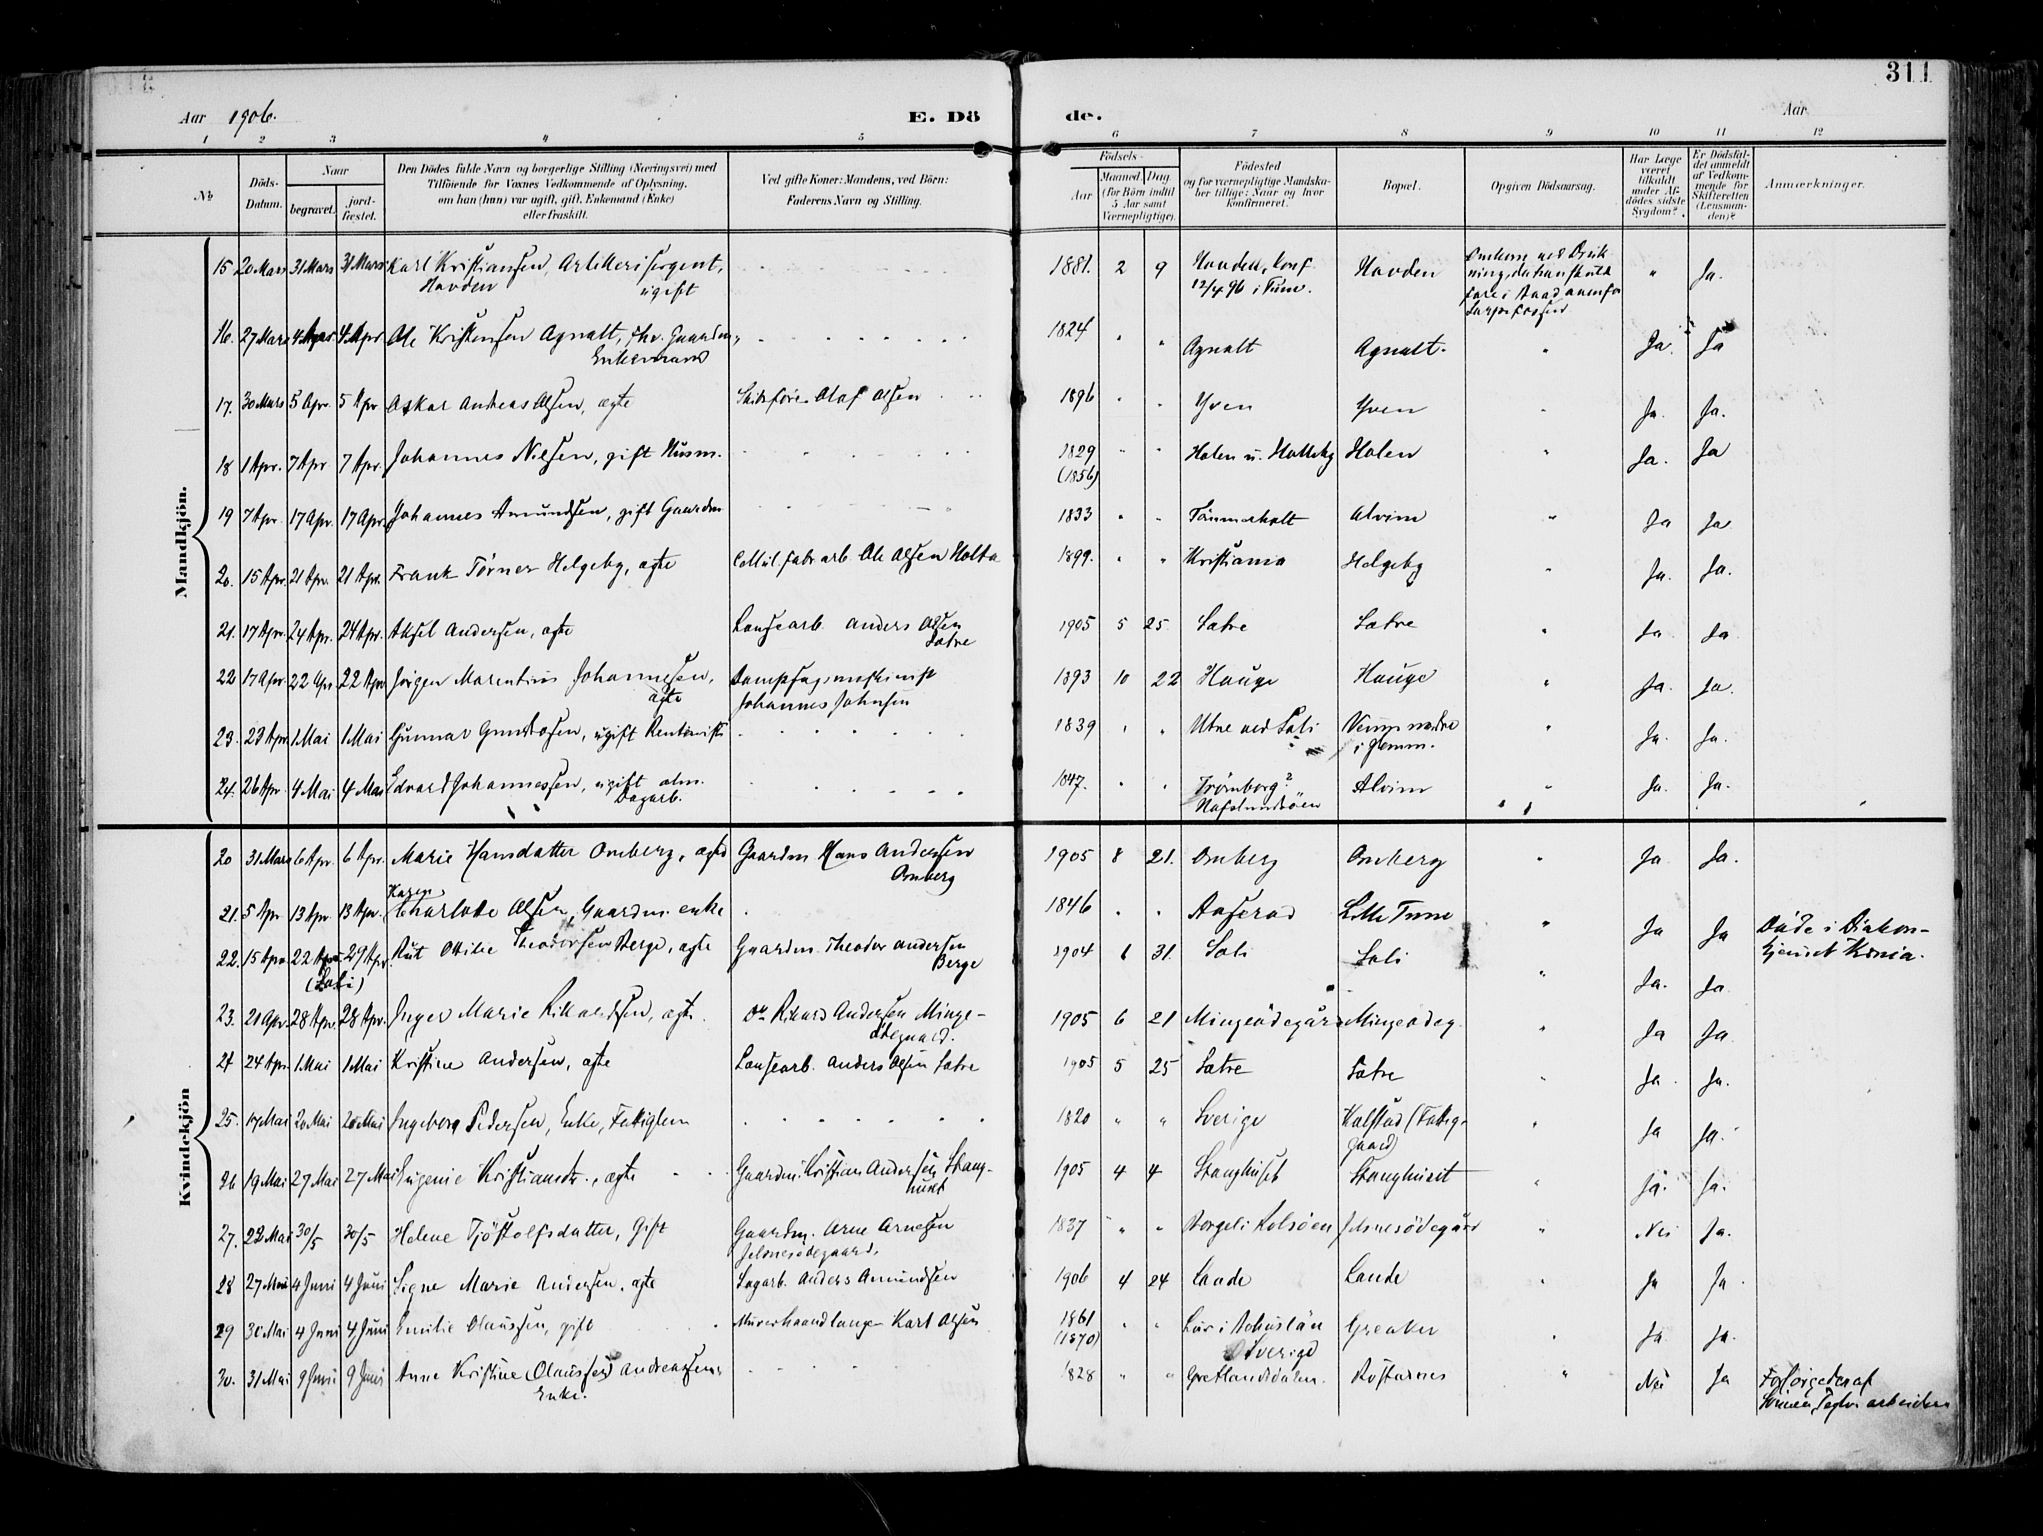 311
Aar 1906. E. Dö de. Aar
1 2 3 4 5 6 7 8 9 10 11 12
No
Döds-Datum.
Naar
begravet.
jord-fæstet.
Den Dödes fulde Navn og borgerlige Stilling (Næringsvei) med
Tilföiende for Voxnes Vedkommende af Oplysning,
om han (hun) var ugift, gift, Enkemand (Enke)
eller fraskilt.
Ved gifte Koner: Mandens, ved Börn:
Faderens Navn og Stilling.
Födsels-
Aar
Maaned. Dag.
(for Börn indtil
5 Aar samt
Værnepligtige).
Födested
og for værnepligtige Mandska-
ber tillige: Naar og hvor
konfirmeret.
Bopæl.
Opgiven Dödsaarsag.
Har Læge
været
tilkaldt
under Af-
dödes sidste
Sygdom?
Er Dödsfal-
det anmeldt
af Vedkom-
mende for
Skifteretten
(Lensman-
den)?
Anmærkninger.
Mandkjön.
15 20 Mars 31 Mars 31 Mars Karl Kristiansen, Artillerisergent, 1881. 2 9 Hovden, konf. Hovden " Ja.
Hovden ugift 12/4 96 i Tune.
16. 27 Mars 4 Apr 4 Apr Ole Kristensen Agnalt, fhv. Gaardm., 1824 " " Agnalt Agnalt. " Ja. Ja
Enkemand
17. 30 Mars 5 Apr. 5 Apr Oskar Andreas Olsen, ægte Olaf Olsen 1896 " " Yven Yven " Ja. Ja.
18 1 Apr. 7 Apr 7 Apr. Johannes Nilsen, gift Husm. 1829 " " Holen u. Holleby Holen " Ja. Ja
(1856)
19 7 Apr. 17 Apr. 17 Apr. Johannes Amundsen, gift Gaardm 1833 " " Tömmerholt Alvim " Ja Ja
20. 15 Apr. 21 Apr. 21 Apr. Frank Törner Helgeby, ægte Ole Olsen Holta 1899. " " Kristiania Helgeby " Ja. Ja.
21. 17 Apr. 24 Apr. 24 Apr. Aksel Andersen, ægte Lensearb. Anders Olsen 1905 5 25 Sætre Sætre " Ja Ja
Sætre
22 17 Apr. 22 Apr 22 Apr Jörgen Marentius Johannesen, Dampsagmaskinist 1893 10 22 Hauge Hauge " Ja. Ja.
ægte Johannes Johnsen
23. 23 Apr. 1 Mai 1 Mai Gunnar Gundersen, ugift Rentenist 1839 " " Utne ved Soli " Ja. Ja.
i Glemm.
24. 26 Apr. 4 Mai 4 Mai Edvard Johannessen, ugift alm. 1847. " " Trömborg? Alvim " Ja. Ja.
Dagarb. Hafslundsöen
Kvindekjön
20 31 Mars 6 Apr. 6 Apr. Marie Hansdatter Omberg, ægte Gaardm Hans Andersen 1905 8 21. Omberg Omberg " Ja Ja.
Omberg
Karen
21. 5 Apr 13 Apr 13 Apr. Charlotte Olsen, Gaardm. enke 1846 " " Aaserød Lille Tune " Ja Ja Döde i Diakon-
hjemmet Krnia.
22. 15 Apr. 22 Apr. 29 Apr. Rut Otilie Theodorsen Berge, ægte Gaardm. Theodor Andersen 1904 31. Soli Soli " Ja. Ja
(Soli) Berge
23. 21 Apr. 28 Apr. 28 Apr. Inger Marie Rikardsen, ægte. Do Rikard Andersen Minge- 1905 6 21 Mingeödegård Mingeödeg. " Ja Ja
ödegaard.
24 24 Apr. 1 Mai 1 Mai Kristine Andersen, ægte Lensearb. Anders Olsen Sætre 1905 5 25 Sætre Sætre " Ja Ja.
25. 17 Mai 20 Mai 20 Mai Ingeborg Pedersen, Enke, Fattiglem 1820 " " Sverige Kalstad (Fattig- " Ja Ja.
gaard)
26 19 Mai 27 Mai 27 Mai Eugenie Kristiansdtr., ægte Gaardm. Kristian Andersen Stang- 1905 4 4 Stanghuset Stanghuset " Ja. Ja.
huset
27. 22 Mai 30/5 30/5 Helene Tjöstolfsdatter, Gift Gaardm. Arne Arnesen 1837 " " Borgeli Rolsöen Jelsnesödegård " Nei Ja.
Jelsnesödegaard.
28 27 Mai 4 Juni 4 Juni Signe Marie Andersen, ægte Sagarb. Anders Amundsen 1906 4 24 Lande Lande " Ja Ja
29 30 Mai 4 Juni 4 Juni Emilie Olaussen, gift Murerhaandlanger Karl Olsen 1861 " " Lur i Bohuslän Greaker " Ja. Ja.
(1870) Sverige
30. 31 Mai 9 Juni 9 Juni Anne Kristine (Olaussen) Andreassen, 1828 " " Grætlandsdalen. " Nei Ja Forsörgedes af
Enke. Sönnen, arbeider